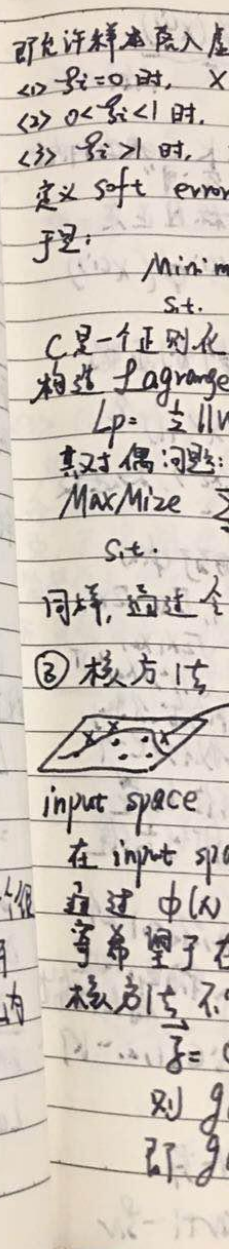 即允许样本落入虚
<1> ξi=0 时, X
<2> 0<ξi<1 时,
<3> ξi>1 时,
定义 soft error
于是:
Minim
s.t.
C是一个正则化
构造 Lagrange
Lp= ½||W
其对偶问题:
MaxMize Σ
s.t.
同样, 通过令
③ 核方法
input space
在 input spa
通过 Φ(x)
寄希望于在
核方法 不
z=
则 g(
即 g(